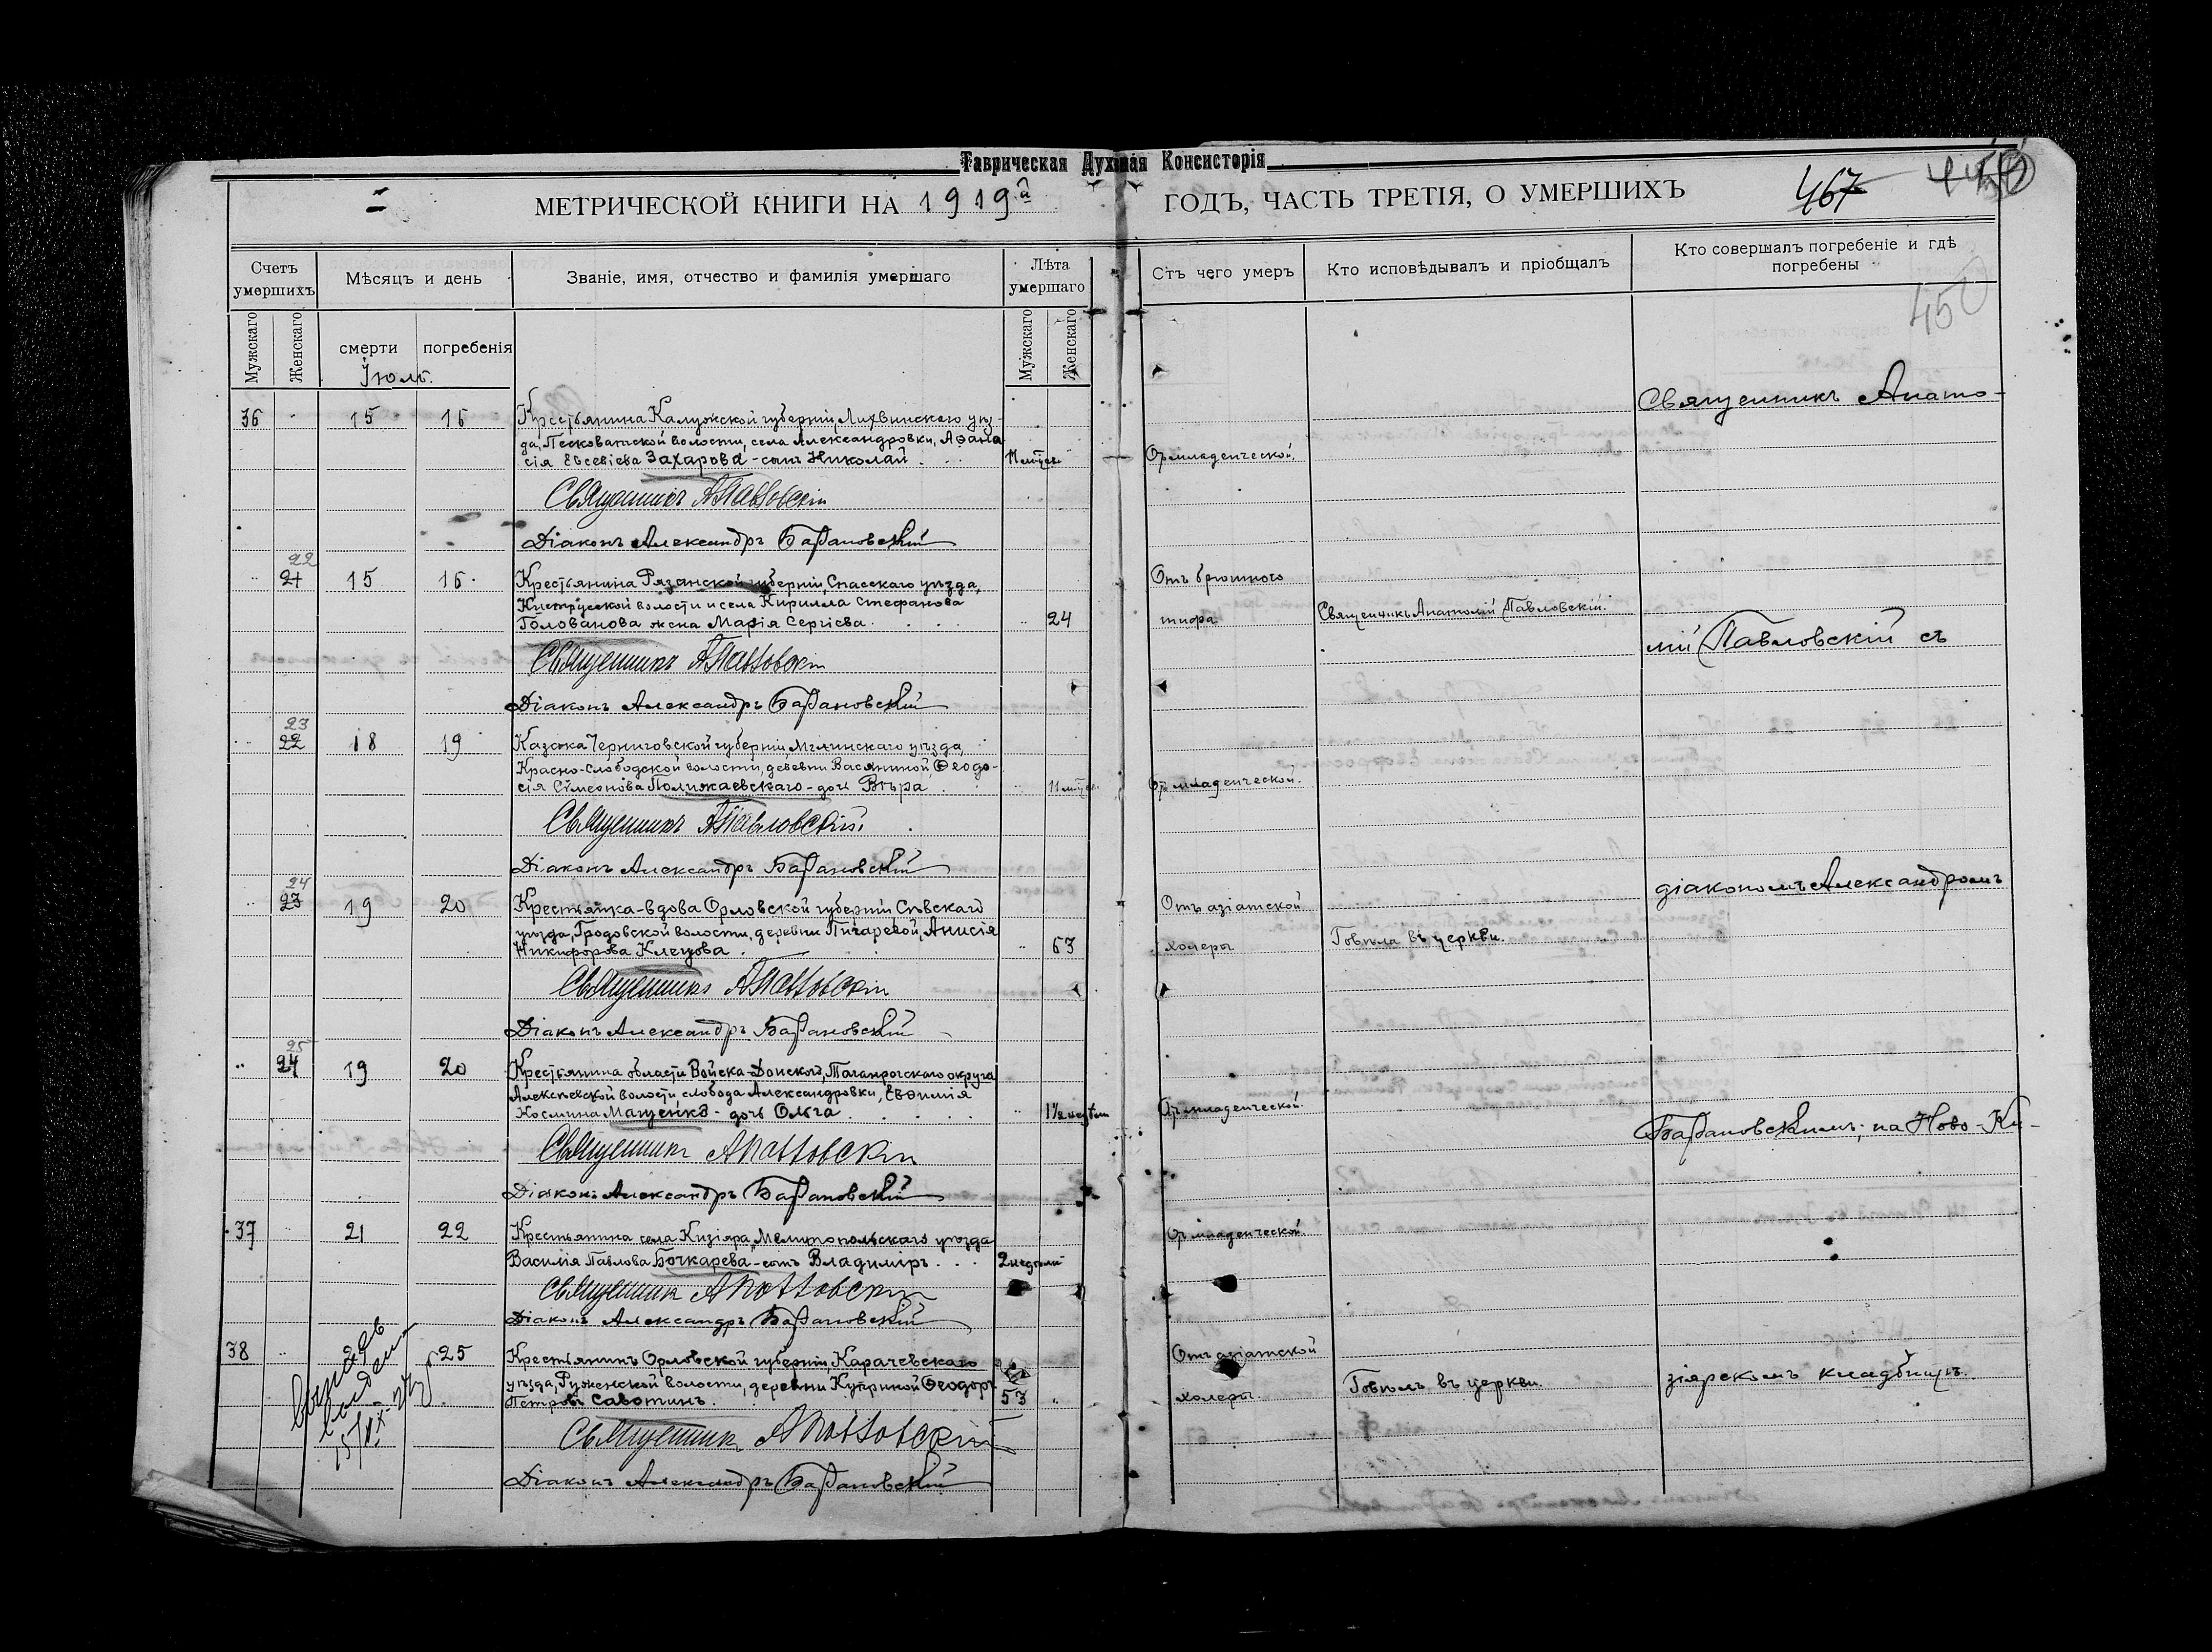 Таврическая Духовная Консисторія
МЕТРИЧЕСКОЙ КНИГИ НА 1919й ГОДЪ, ЧАСТЬ ТРЕТІЯ, О УМЕРШИХЪ
467
450
Счетъ умершихъ
Мѣсяцъ и день
Званіе, имя, отчество и фамилія умершаго
Лѣта умершаго
Отъ чего умеръ
Кто исповѣдывалъ и пріобщалъ
Кто совершалъ погребеніе и гдѣ погребены
Мужскаго
Женскаго
смерти
погребенія
Мужскаго
Женскаго
Іюль.
36 15 16
Крестьянина Калужской губерніи, Лихвинскаго уѣз-
да, Песковатской волости, села Александровки, Аѳана
сія Евсевіева Захарова - сынъ Николай
11 мѣсяц.
От младенческой.
Священникъ Анато-
Священникъ А Павловскій
Діаконъ Александръ Барановскій
22
21 15 16.
Крестьянина Рязанской губерніи, Спасскаго уѣзда,
волости и села Кирилла Стефанова
Голованова жена Марія Сергіева.
24
Отъ брюшного
тифа
Священникъ Анатолій Павловскій.
лій Павловскій съ
Священникъ А Павловскій
Діаконъ Александръ Барановскій
23
22 18 19
Казака Черниговской губерніи, Мглинскаго уѣзда,
Красно-Слободской волости, деревни Васяниной, Ѳеодо-
сія Симеонова Полижаевскаго - дочь Вѣра
11 мѣсяц.
От младенческой.
Священникъ А Павловскій
Діаконъ Александръ Барановскій
24
23 19 20
Крестьянка-вдова Орловской губерніи, Сѣвскаго
уѣзда, Бродовской волости, деревни Пигаревой, Анисія
Никифорова Клецова.
63
Отъ азіатской
холеры
Говѣла въ церкви.
діакономъ Александромъ
Священникъ А Павловскій
Діаконъ Александръ Барановскій
25
24 19 20
Крестьянина области Войска-Донского, Таганрогскаго округа
Алексѣевской волости слобода Александровки, Евѳимія
Космина Мащенко - дочь Ольга
1½ недѣли
От младенческой.
Барановскимъ; на Ново-Ки-
Священникъ А Павловскій
Діаконъ Александръ Барановскій
37 21 22
Крестьянина села Кизіяра, Мелитопольскаго уѣзда
Василія Павлова Бочкарева - сынъ Владиміръ
2 недѣли
От младенческой.
Священникъ А Павловскій
Діаконъ Александръ Барановскій
38 25
Крестьянинъ Орловской губерніи, Карачевскаго
уѣзда, Руженской волости, деревни Куприной Ѳеодоръ
Петровъ Савотинъ.
53
Отъ азіатской
холеры.
Говѣлъ въ церкви.
зіярскомъ кладбищѣ.
Священникъ А Павловскій
Діаконъ Александръ Барановскій